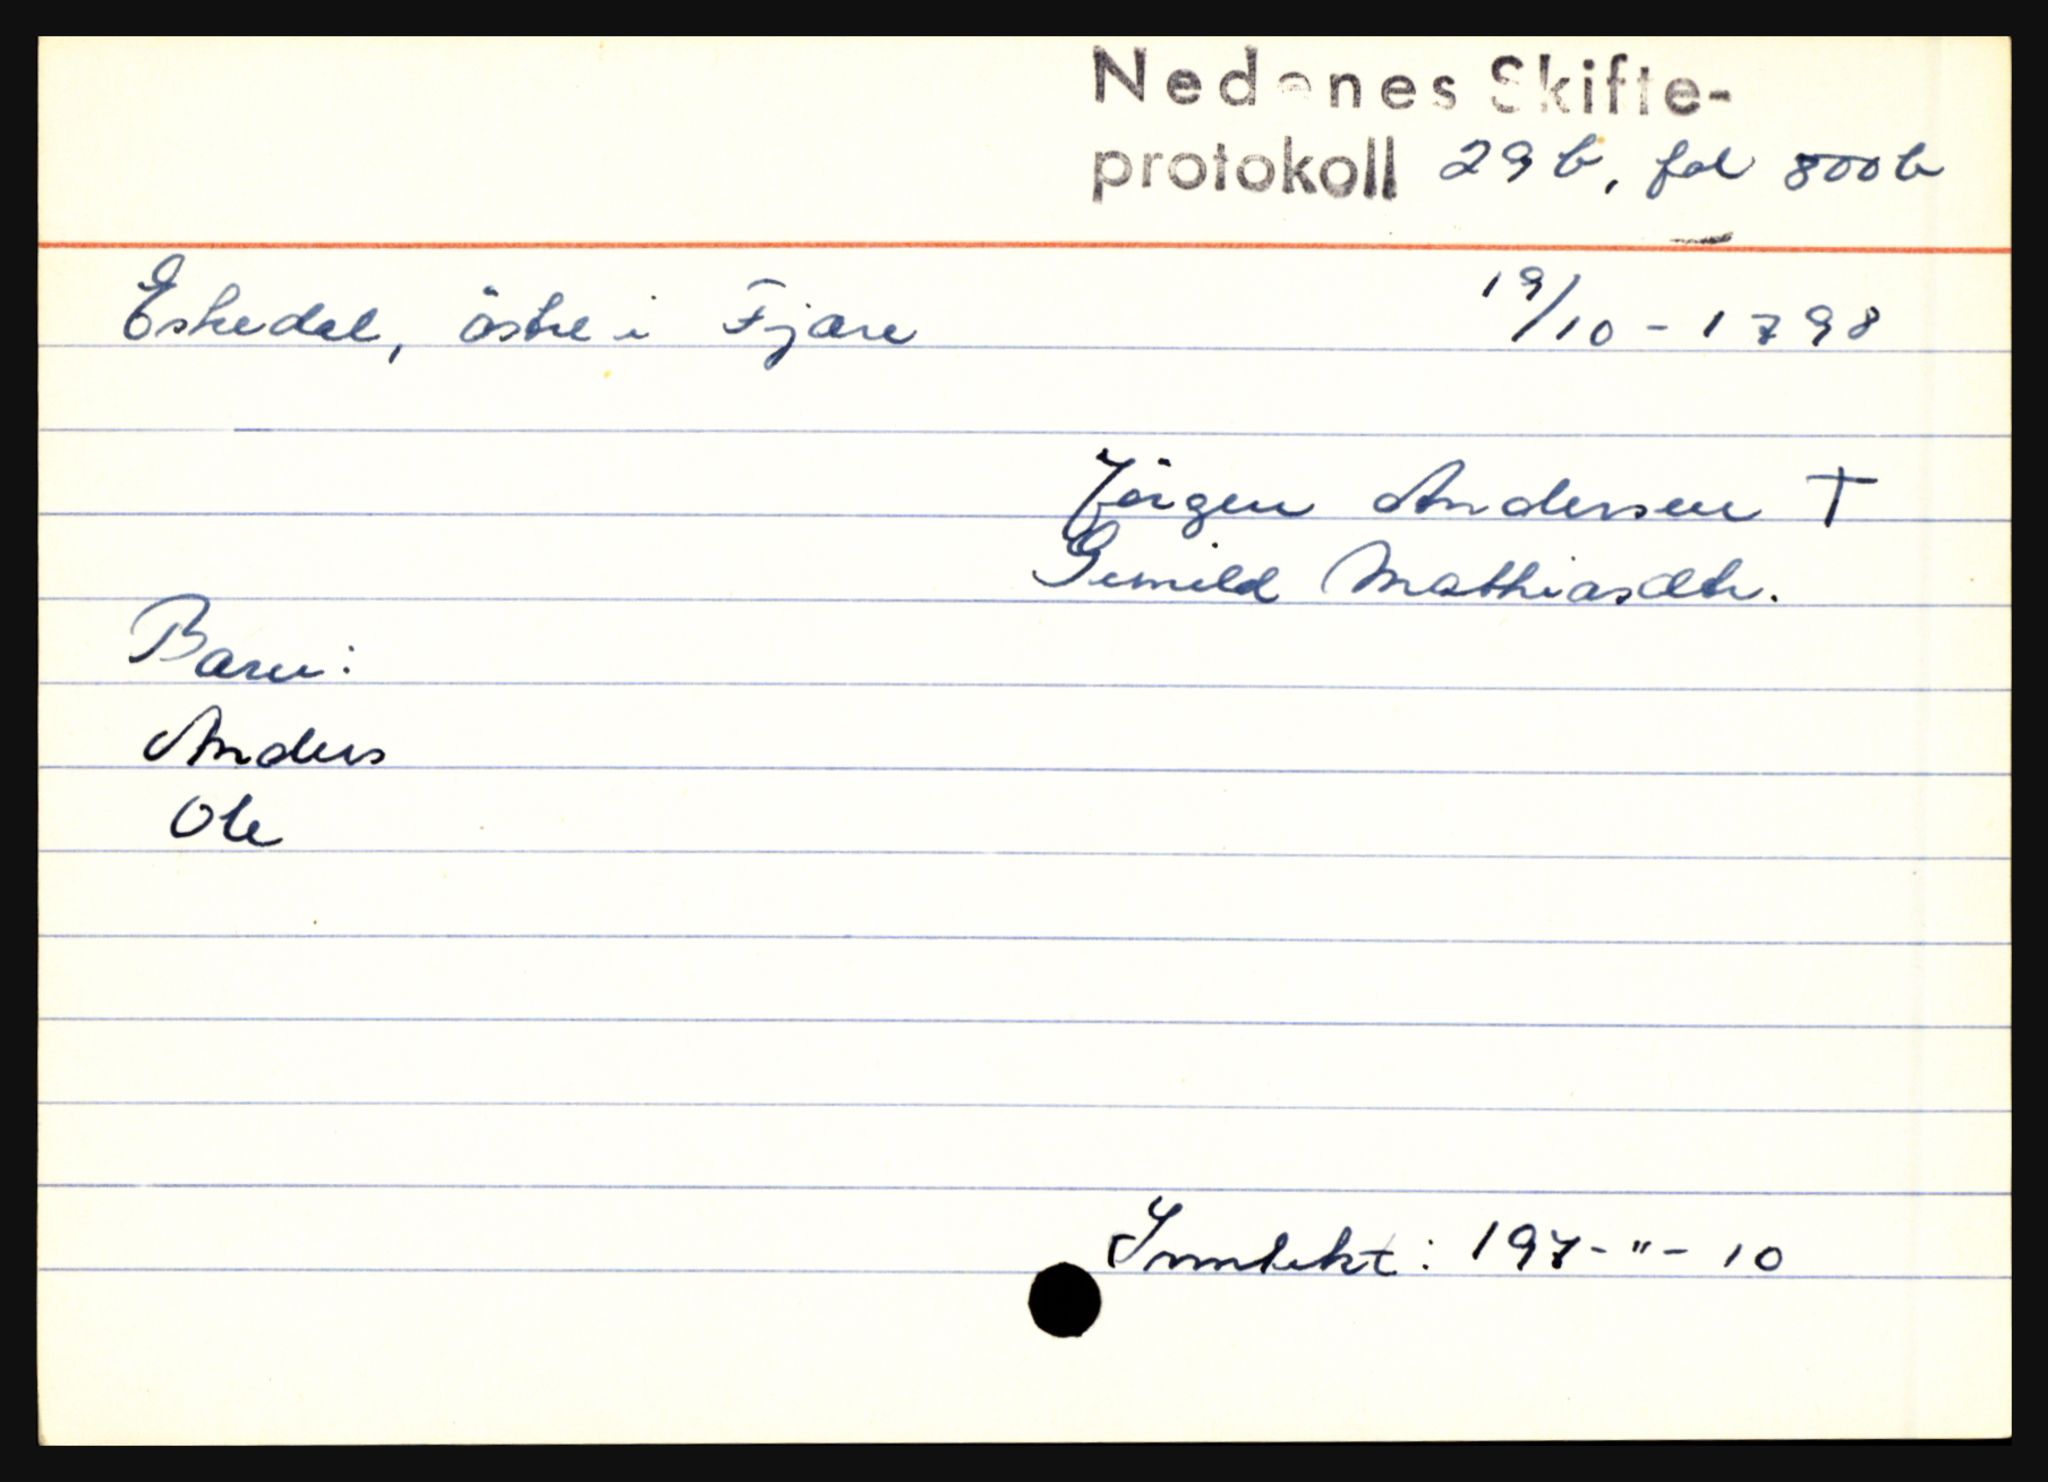 Nedenes Skifte-
protokoll 29 b, fol 800 b
Eskedal, östre i Fjære
19/10 - 1798
Jörgen Andersen †
Gunild Mathiasdtr.
Barn:
Anders
Ole
Inntekt: 197 - " - 10